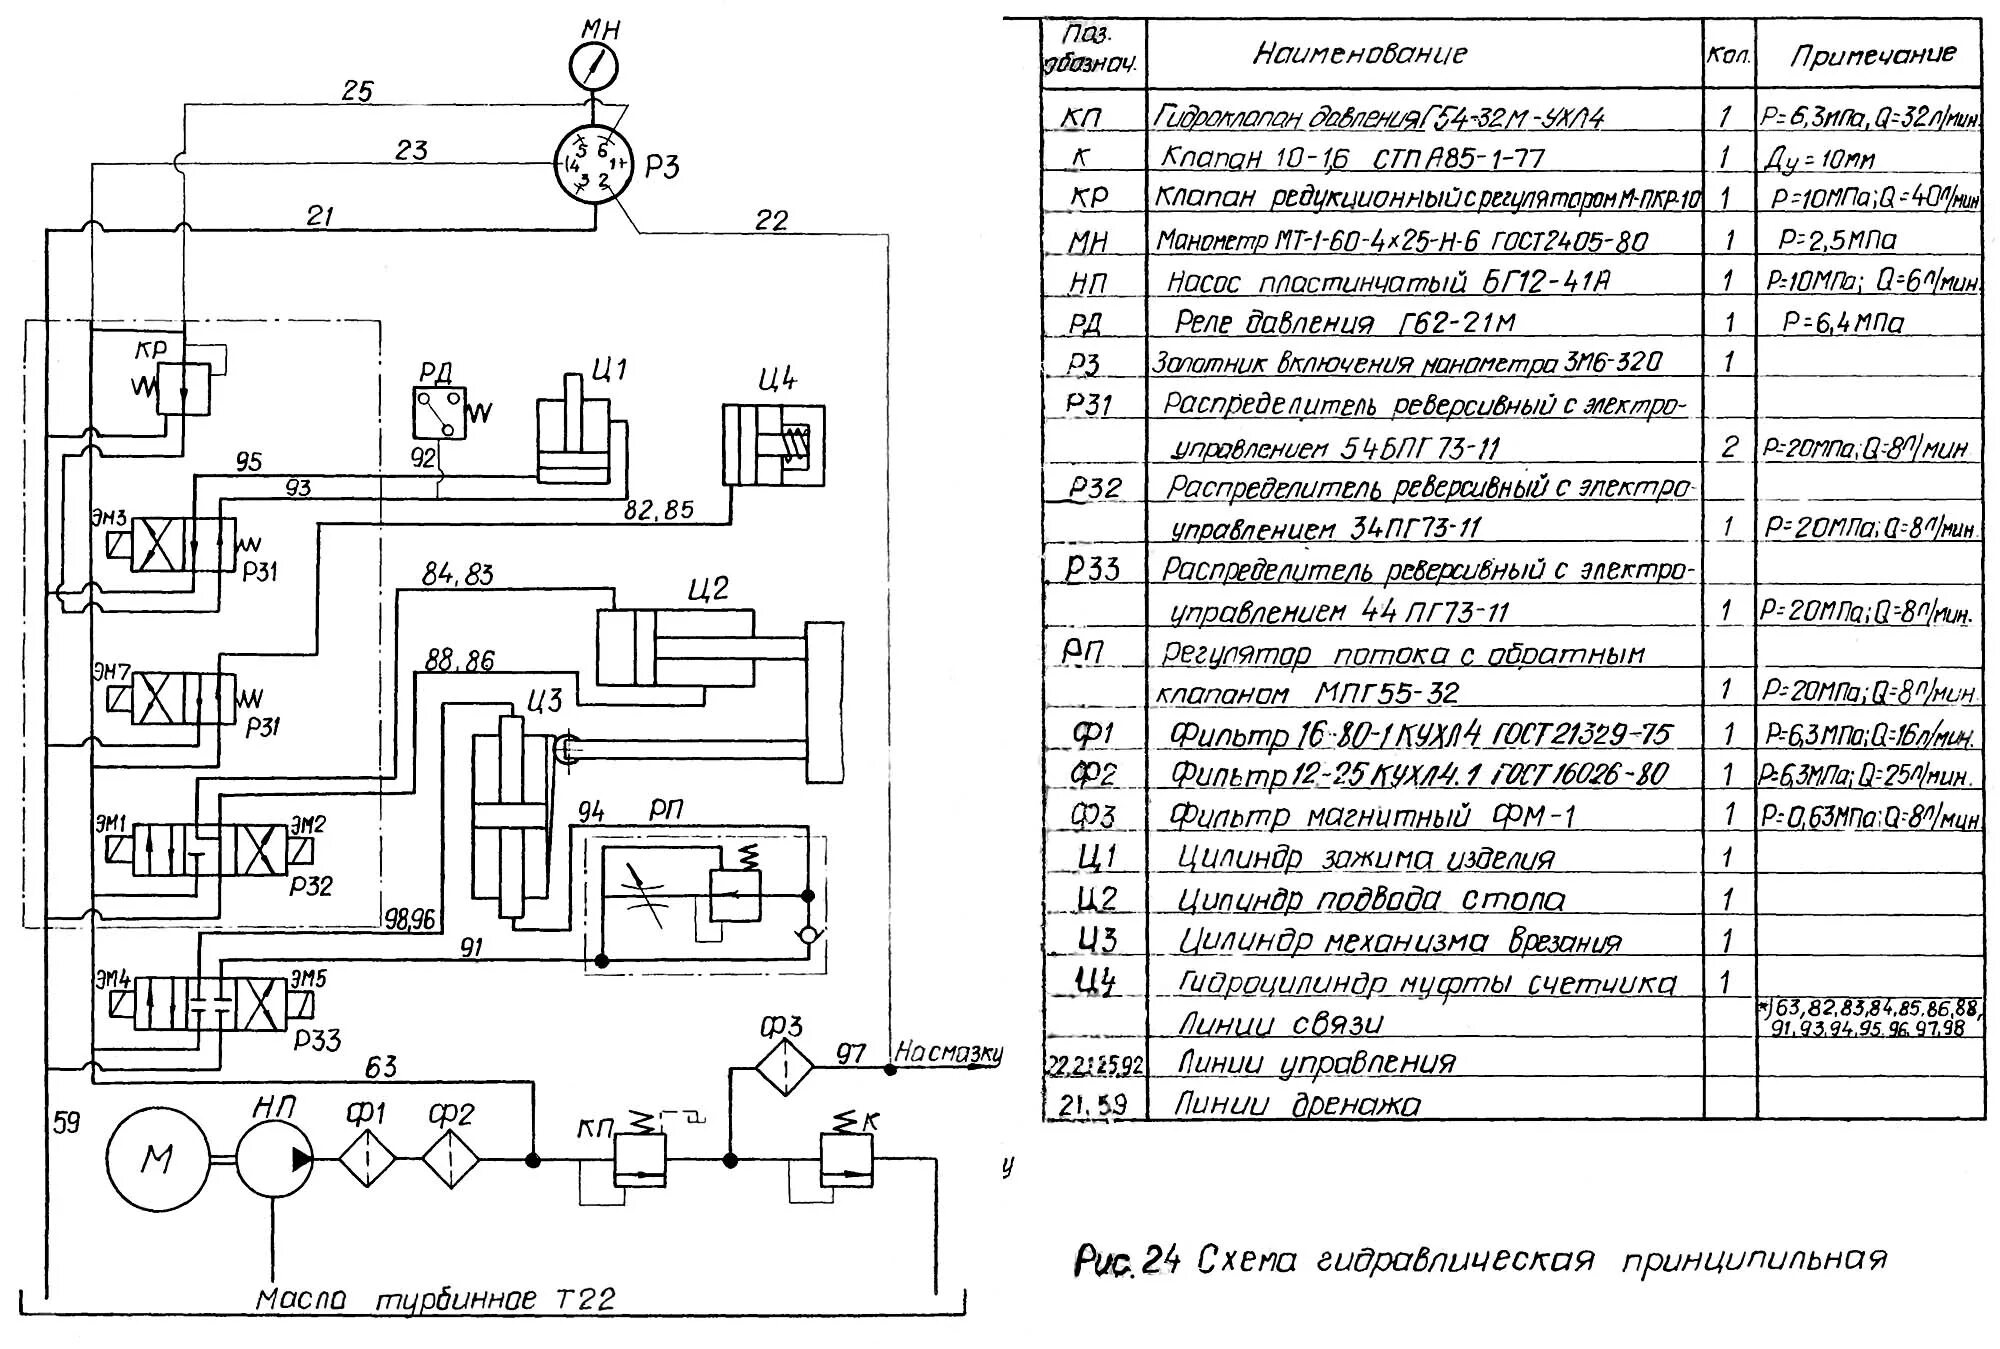 МН
25
23
5 6
4 1
3 2
РЗ
21
22
КР
РД
Ц1
Ц4
92
95
93
82,85
ЭМ3
Р31
84,83
Ц2
88,86
ЭМ7
Р31
Ц3
94
РП
ЭМ1
ЭМ2
Р32
98,96
91
ЭМ4
ЭМ5
Р33
Ф3
97
На смазку
63
59
НП
Ф1
Ф2
КП
К
М
Масло турбинное Т22
Поз. обознач. Наименование Кол. Примечание
КП Гидроклапан давления Г54-32М-УХЛ4 1 Р=6,3мпа, Q=32л/мин.
К Клапан 10-1,6 СТП А85-1-77 1 Ду=10мм
КР Клапан редукционный с регулятором М-ПКР-10 1 Р=10МПа; Q=40л/мин
МН Манометр МТ-1-60-4х25-Н-6 ГОСТ2405-80 1 Р=2,5МПа
НП Насос пластинчатый БГ12-41А 1 Р=10МПа; Q=6л/мин.
РД Реле давления Г62-21М 1 Р=6,4МПа
РЗ Золотник включения манометра ЗМ6-320 1
Р31 Распределитель реверсивный с электро-
управлением 54БПГ73-11 2 Р=20МПа; Q=8л/мин
Р32 Распределитель реверсивный с электро-
управлением 34ПГ73-11 1 Р=20МПа; Q=8л/мин.
Р33 Распределитель реверсивный с электро-
управлением 44ПГ73-11 1 Р=20МПа; Q=8л/мин.
РП Регулятор потока с обратным
клапаном МПГ55-32 1 Р=20МПа; Q=8л/мин.
Ф1 Фильтр 16-80-1КУХЛ4 ГОСТ21329-75 1 Р=6,3МПа; Q=16л/мин.
Ф2 Фильтр 12-25КУХЛ4.1 ГОСТ16026-80 1 Р=6,3МПа; Q=25л/мин.
Ф3 Фильтр магнитный ФМ-1 1 Р=0,63МПа; Q=8л/мин
Ц1 Цилиндр зажима изделия 1
Ц2 Цилиндр подвода стола 1
Ц3 Цилиндр механизма врезания 1
Ц4 Гидроцилиндр муфты счетчика 1
Линии связи *)63,82,83,84,85,86,88,
91,93,94,95,96,97,98
Линии управления
21,59 Линии дренажа
у
Рис. 24 Схема гидравлическая принципильная